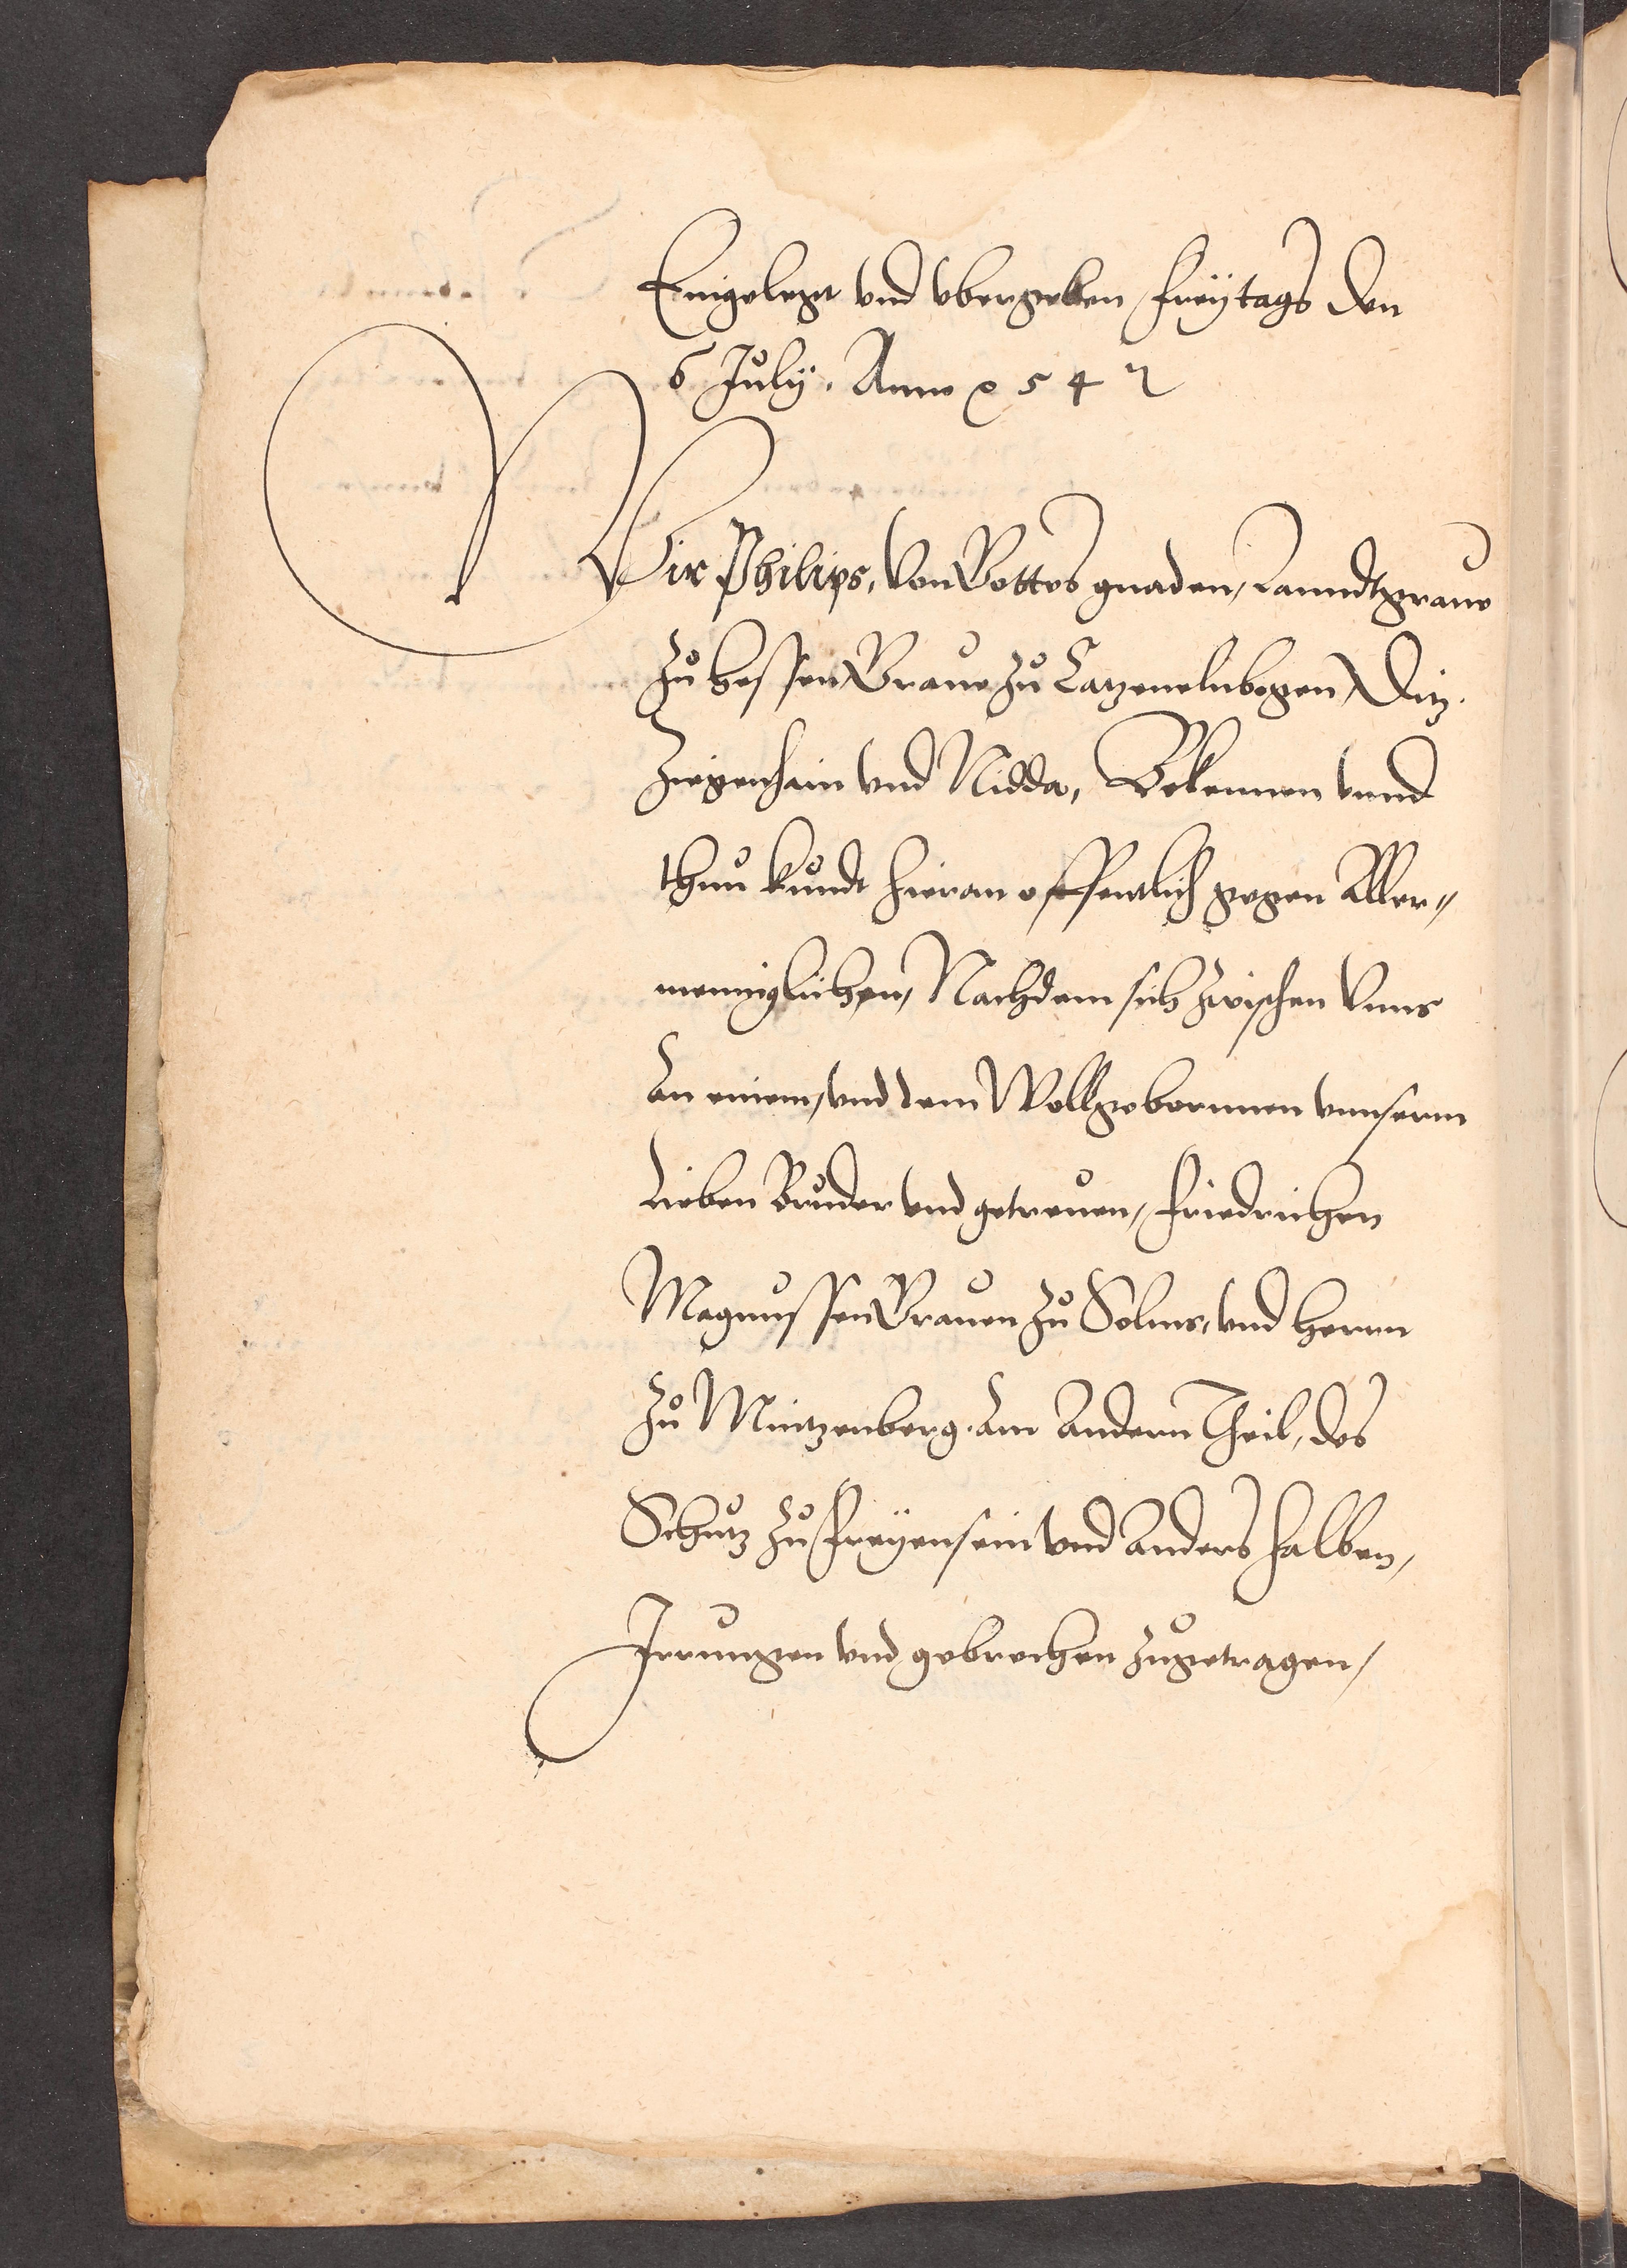 Eingelegt vnd vbergeben, freÿtags den
6 Julÿ. Anno
Wir Philips, Von Gottes gnaden, Lanndtgraue
zů hessen Graue zů Catzenelnbogen, Ditz.
Ziegenhain vnd Nidda, Bekennen vnnd
thun kundt hieran offentlich gegen Aller„
menniglichen, Nachdem sich zwischen Vnns
An einem, vnd dem Wollgebornnen vnnserm
Lieben Bruder vnd getreuen, Friedrichen
Magnussen Grauen zů Solms, vnd herrn
zů Mintzenberg. Am Andern Theil, des
Schutz zů freÿensein vnd Anders halben,
Irrungen vnd gebrechen zugetragen,